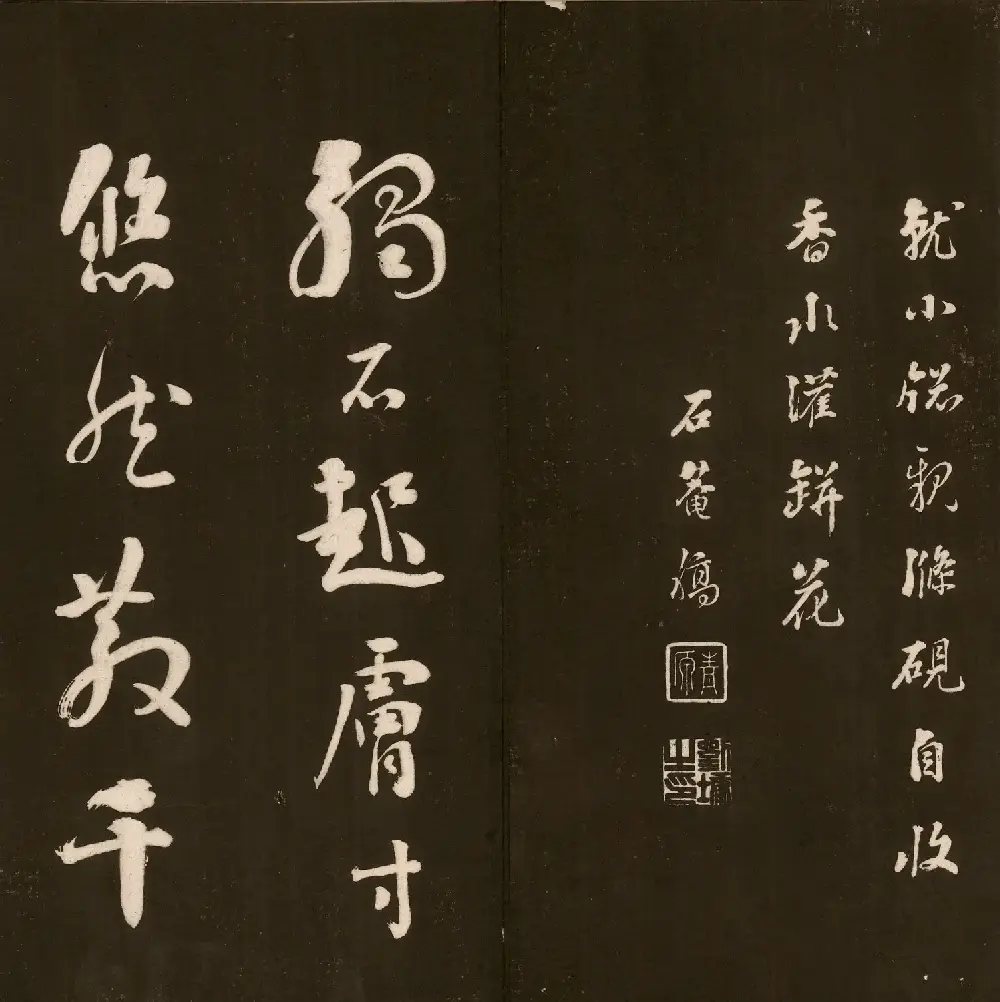 就小牕親滌硯自收
香水灌缾花
石菴
青原
劉墉之印
觸石起膚寸
悠然散千